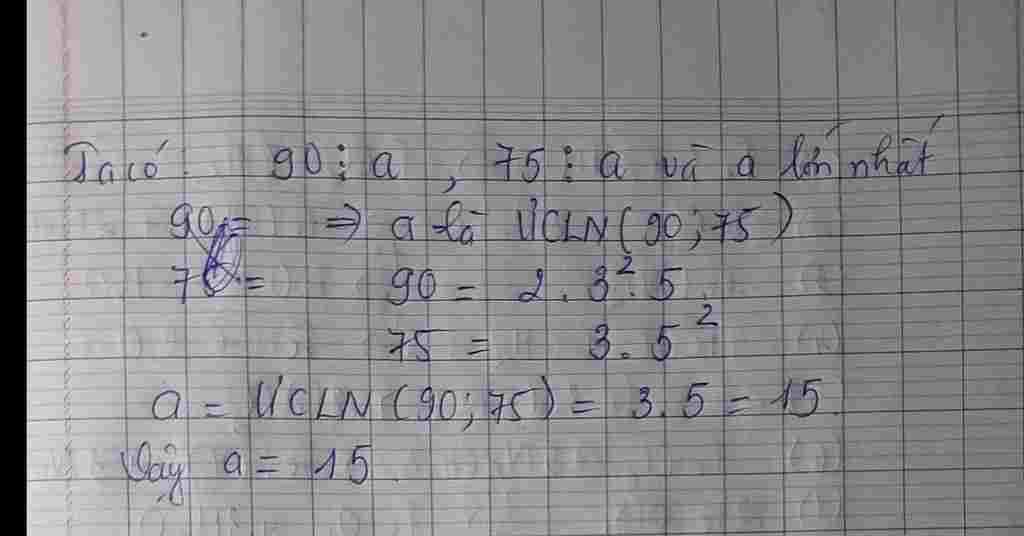 Ta có: 90 ⋮ a , 75 ⋮ a và a lớn nhất
90 = ⇒ a là ƯCLN(90;75)
= 90 = 2 . 3² . 5
75 = 3 . 5²
a = ƯCLN (90;75) = 3.5 = 15.
Vậy a = 15.